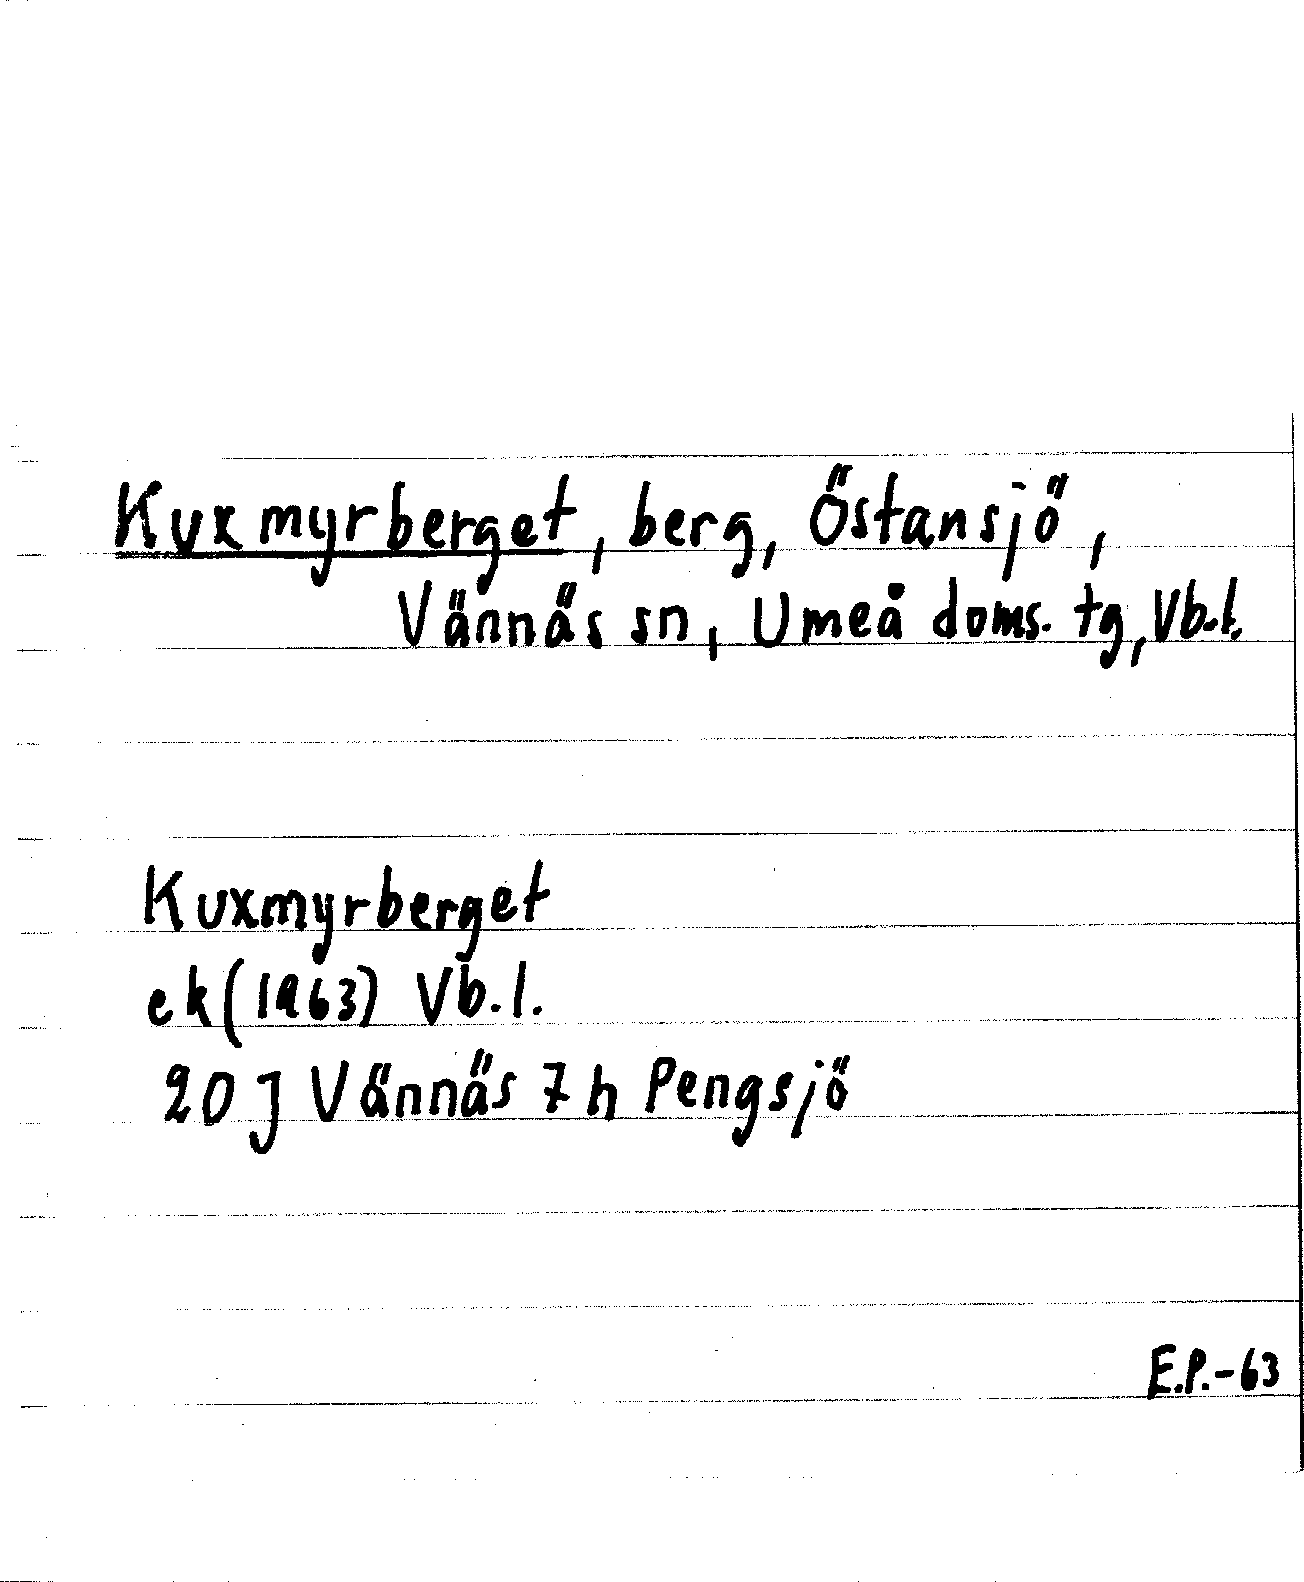 Kuxmyrberget, berg, Östansjö,
Vännäs sn, Umeå doms. tg, Vb.l.
Kuxmyrberget
ek (1963) Vb.l.
20 J Vännäs 7h Pengsjö
E.P.-63